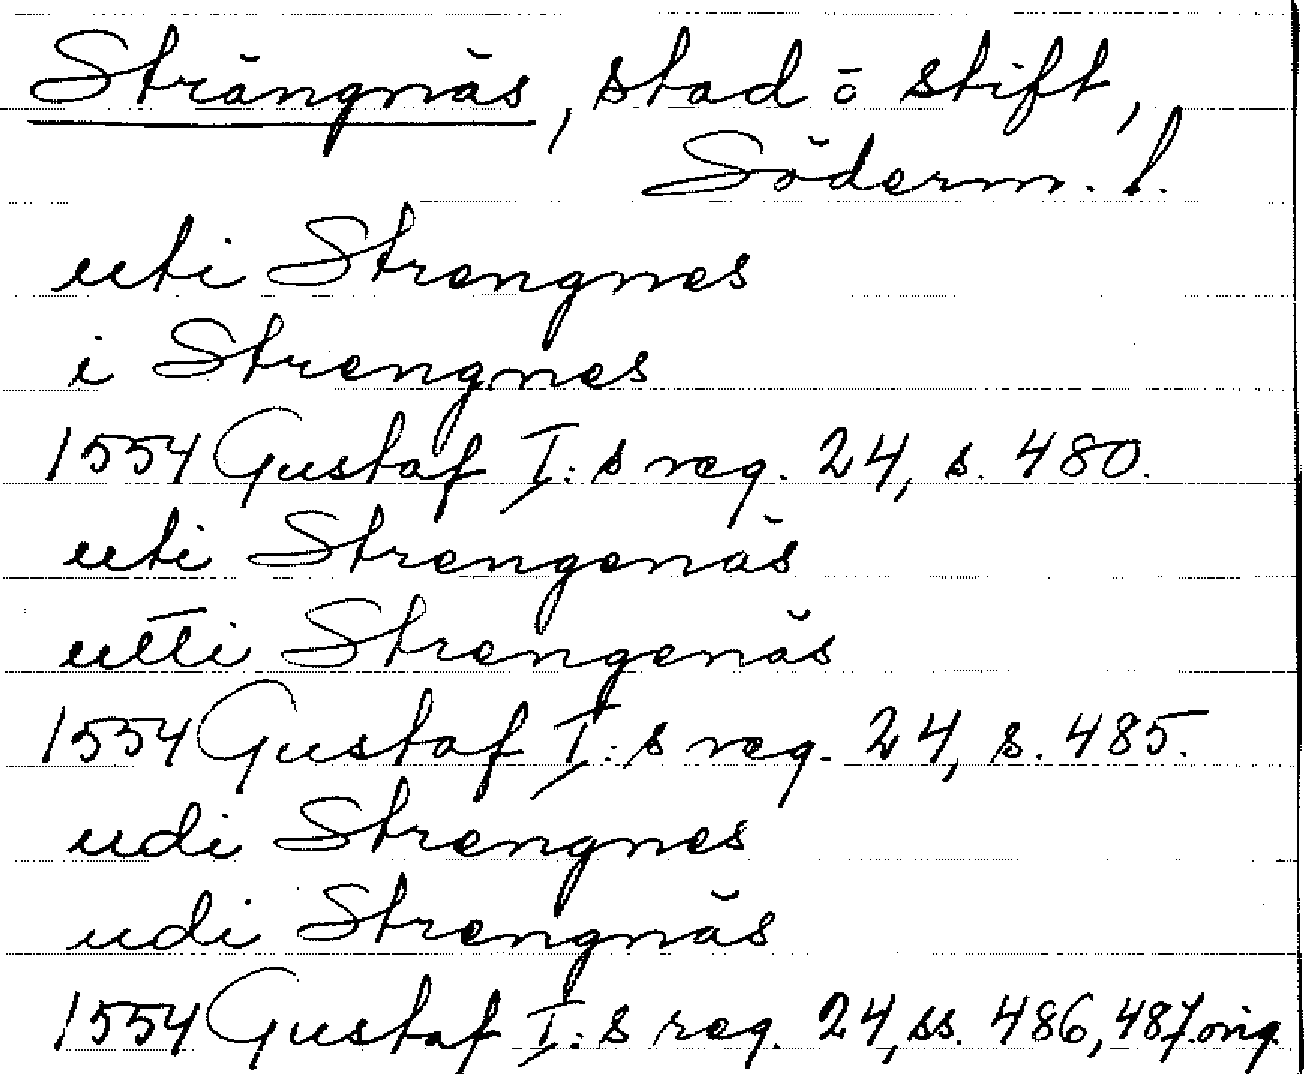 Strängnäs, stad o stift,
Söderm. l.
uti Strengnes
i Strengnes
1554 Gustaf I:s reg. 24, s. 480.
uti Strengenäs
utti Strengenäs
1554 Gustaf I:s reg. 24, s. 485.
udi Strengnes
udi Strengnäs
1554 Gustaf I:s reg. 24, ss. 486, 487. orig.